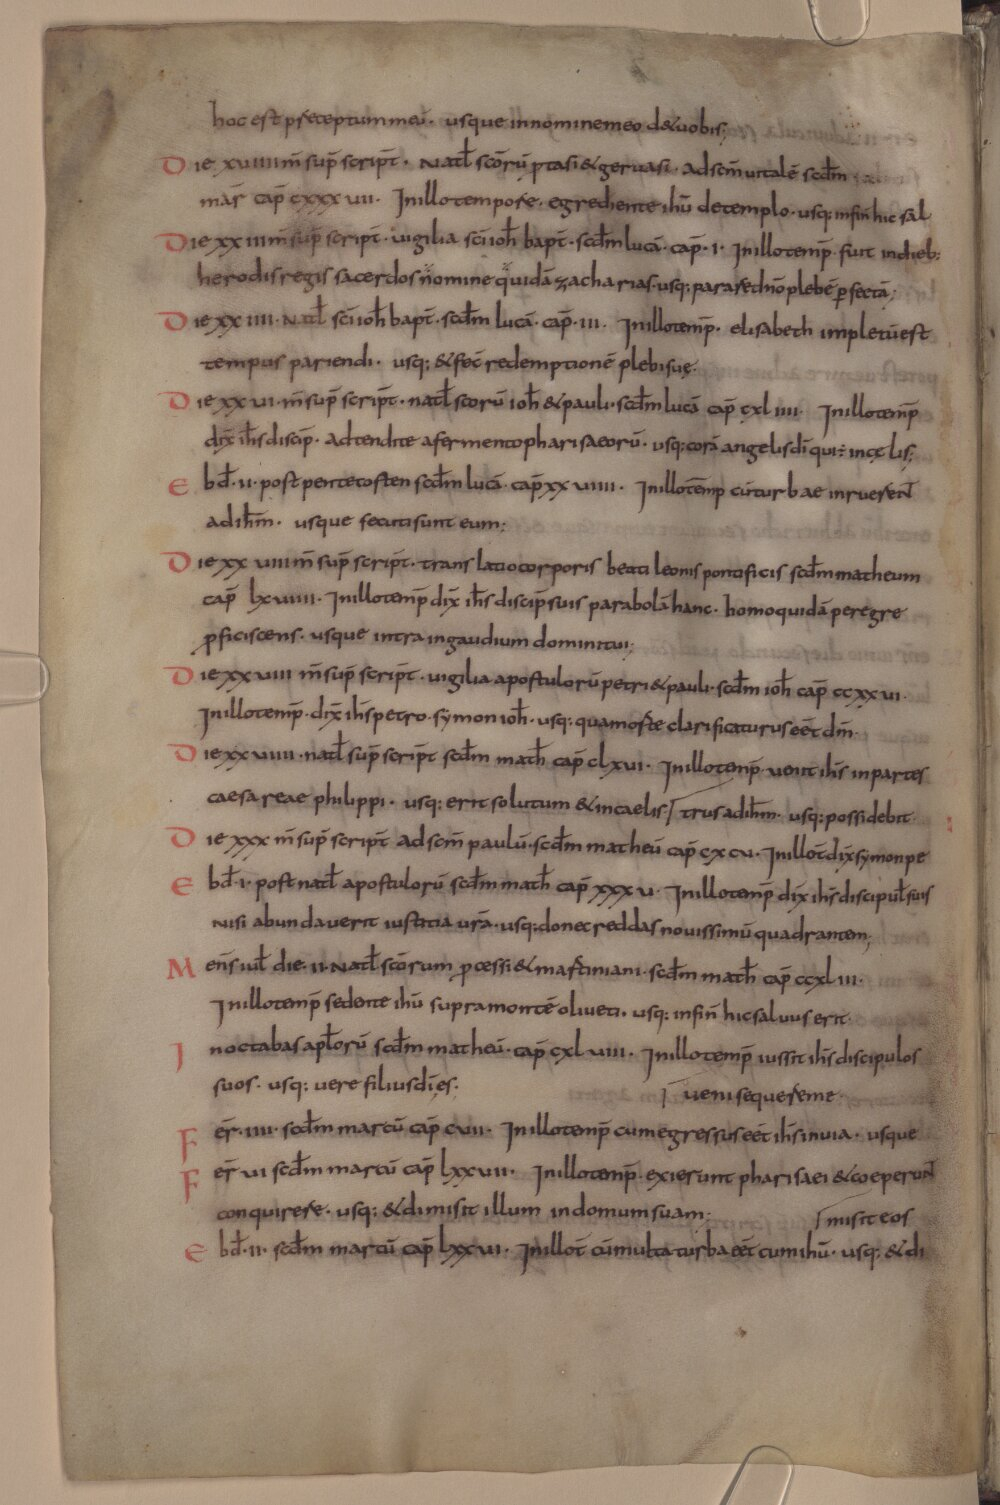 hoc est preceptum meū. usque in nomine meo d& uobis;
Die xviiii m̄ sup̄ script̄. Natł scōrū ptasi & geruasi. ad scm̄ uitalē scdm̄
mar̄ cap̄ cxxxvii. In illo tempore. egrediente ihū de templo. usq; in fin̄ hic sal
Die xxiii m̄ sup̄ script̄. uigilia sc̄i ioh̄ bapt̄. scdm̄ lucā. cap̄. i. In illo temp̄. fuit in dieb;
herodis regis sacerdos nomine quidā zacharias. usq; parare dn̄o plebē pfectā;
Die xxiiii. Natł sc̄i ioh̄ bapt̄. scdm̄ lucā. cap̄. iii. In illo temp̄. elisabeth impletū est
tempus pariendi. usq; & fec̄ redemptionē plebi suę.
Die xxvi. m̄ sup̄ script̄. natł scorū ioh̄ & pauli. scdm̄ lucā cap̄ cxliiii. In illo temp̄
dix̄ ih̄s discip̄. adtendite a fermento pharisaeorū. usq; corā angelis dī qui in cęlis;
Ebd̄. ii. post pentecosten scdm̄ lucā. cap̄ xxviiii. In illo temp̄ cū turbae inruerent
ad ihm̄. usque secuti sunt eum;
Die xxviii m̄ sup̄ script̄. translatio corporis beati leonis pontificis scdm̄ matheum
cap̄ lxviiii. In illo temp̄ dix̄ ih̄s discip̄ suis parabolā hanc. homo quidā peregre
pficiscens. usque intra in gaudium domini tui;
Die xxviii m̄ sup̄ script̄. uigilia apostulorū petri & pauli. scdm̄ ioh̄ cap̄ ccxxvi.
In illo temp̄. dix̄ ih̄s petro. symon ioh̄. usq; qua morte clarificaturus eēt dm̄.
Die xxviiii. natł sup̄ script̄ scdm̄ math̄ cap̄ clxvi. In illo temp̄. uenit ih̄s in partes
caesareae philippi. usq; erit solutum & in caelis / trus ad ihm̄. usq; possidebit.
Die xxx m̄ sup̄ script̄ ad scm̄ paulū. scdm̄ matheū cap̄ cxcv. In illot̄ dix̄ symon pe
Ebd̄. i. post natł apostulorū scdm̄ math̄ cap̄ xxxv. In illo temp̄ dix̄ ih̄s discipuł suis
Nisi abundauerit iustitia ur̄a. usq; donec reddas nouissimū quadrantem;
Men̄s iuł die. ii. Natł scōrum pcessi & martiniani. scdm̄ math̄ cap̄ ccxliii.
In illo temp̄ sedente ihū supra montē oliueti. usq; in fin̄ hic saluus erit.
In octabas apłorū scdm̄ matheū. cap̄ cxlviii. In illo temp̄ iussit ih̄s discipulos
suos. usq; uere filius dī es; / ueni sequere me.
Fer̄. iiii. scdm̄ marcū cap̄ cvii. In illo temp̄ cum egressus eēt ih̄s in uia. usque
Fer̄ vi scdm̄ marcū cap̄ lxxvii. In illo temp̄. exierunt pharisaei & coeperunt
conquirere. usq; & dimisit illum in domum suam. / misit eos
Ebd̄. ii. scdm̄ marcū cap̄ lxxvi. In illot̄ cū multa turba eēt cum ihū. usq; & di